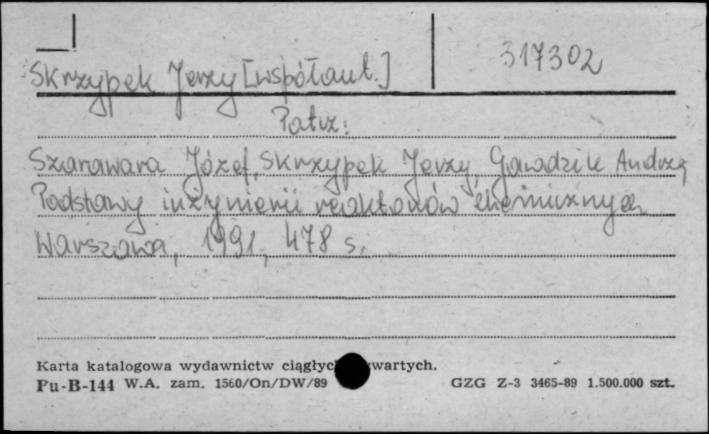 Skrzypek Jerzy [współaut.]
317302
Patrz:
Szarawara Józef, Skrzypek Jerzy, Gawdzik Andrzej
Podstawy inżynierii reaktorów chemicznych
Warszawa, 1991, 478 s.
Karta katalogowa wydawnictw ciągłyc wartych.
Pu-B-144 W.A. zam. 1560/On/DW/89 GZG Z-3 3465-89 1.500.000 szt.